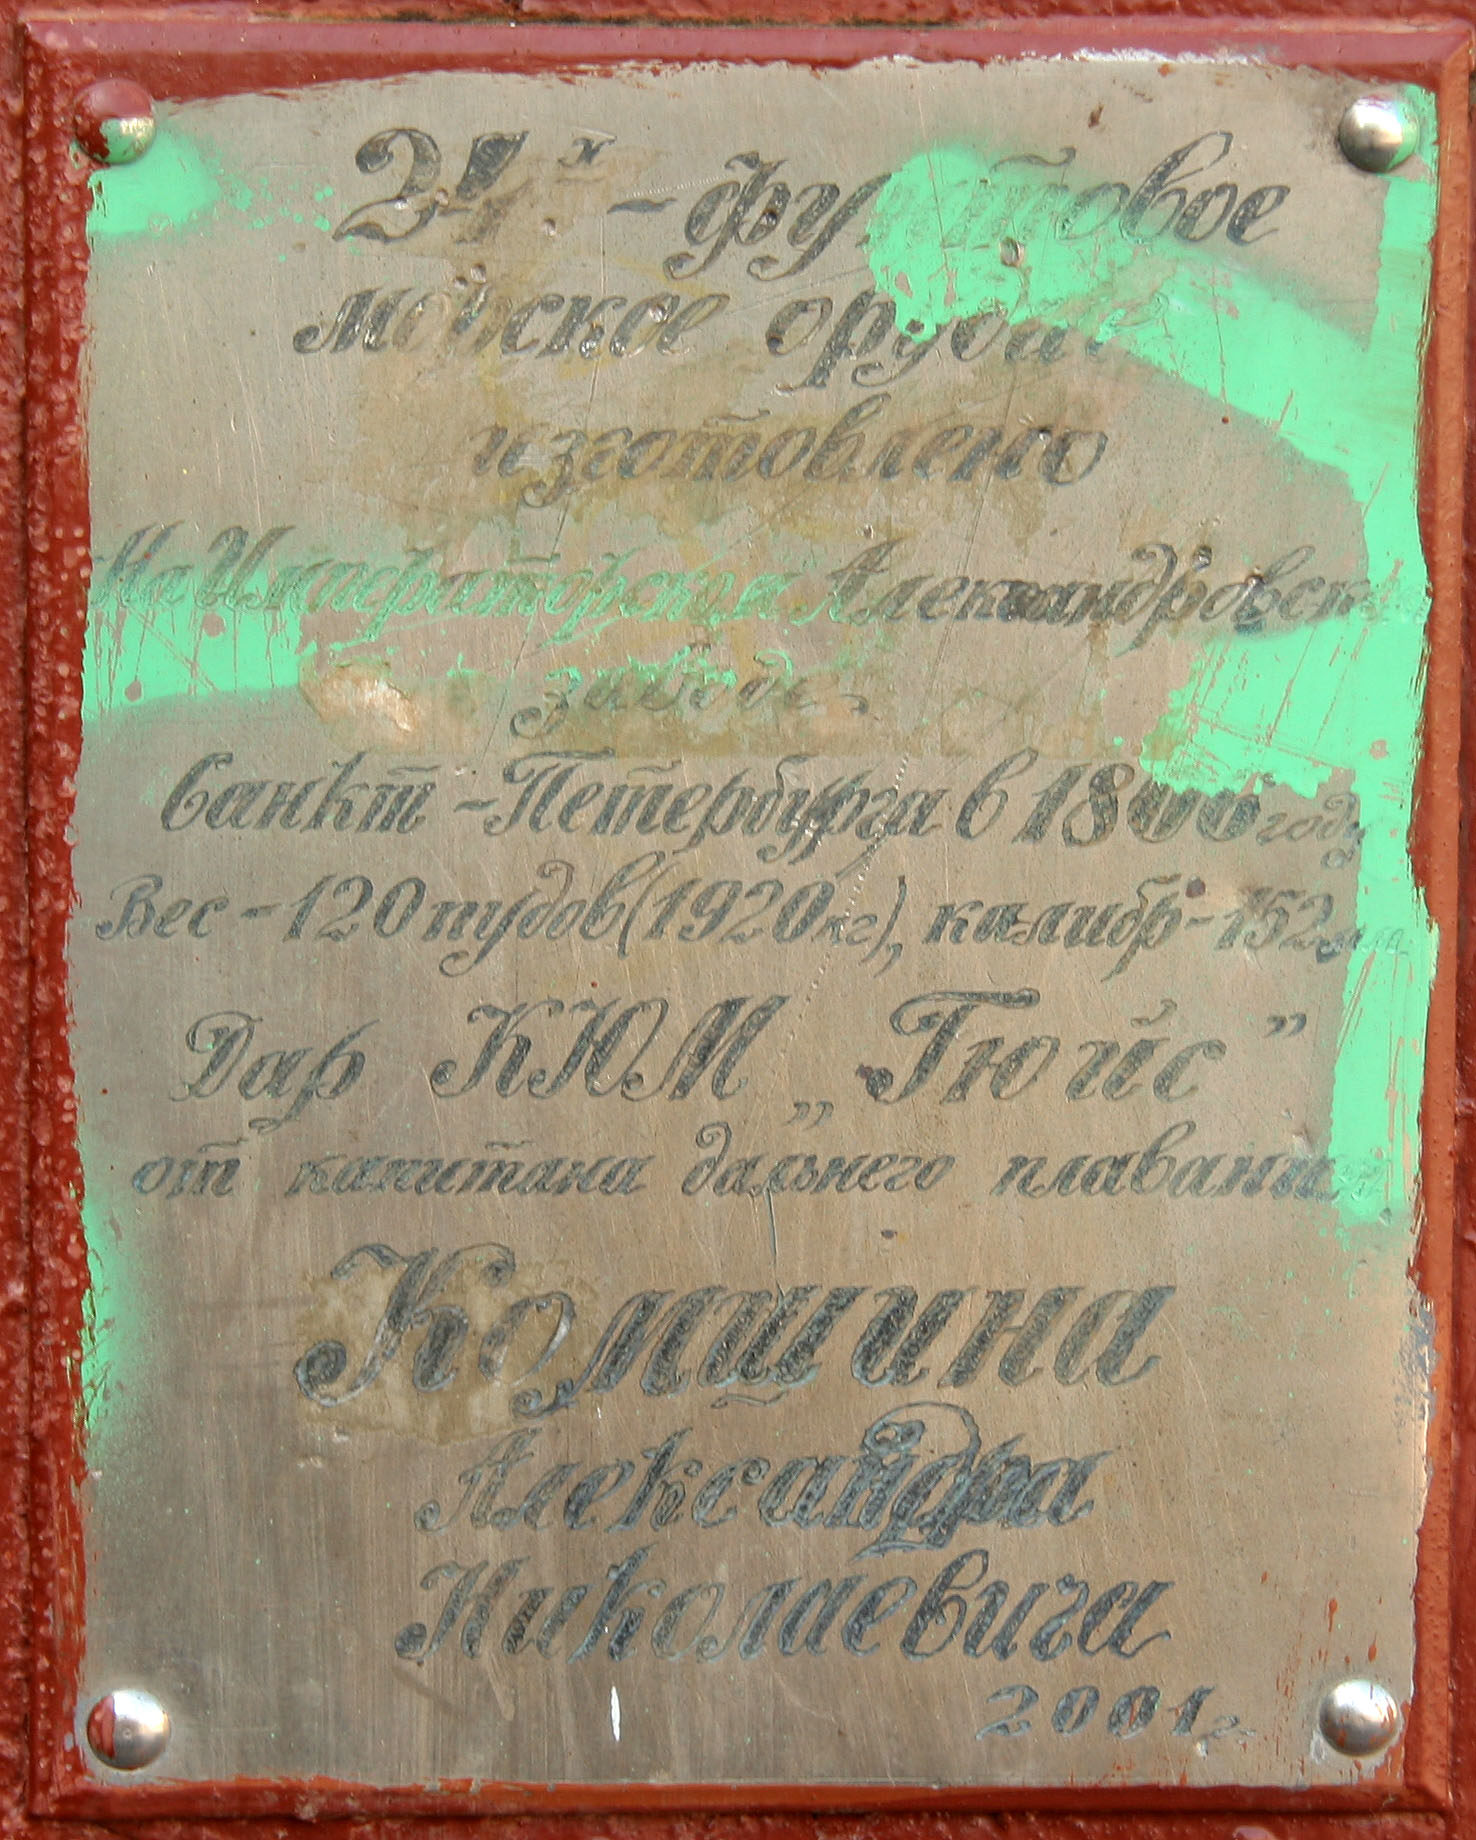 24х-фунтовое
морское орудие
изготовлено
На Императорском Александровском
заводе
Санкт-Петербурга в 1800 году
Вес-120 пудов (1920кг), калибр-152мм
Дар КЮМ „Гюйс”
от капитана дальнего плавания
Комшина
Александра
Николаевича
2001г.